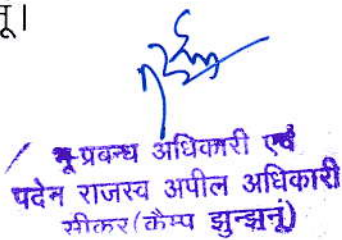 नूं।
भू-प्रबन्ध अधिकारी एवं
पदेन राजस्व अपील अधिकारी
सीकर (कैम्प झुन्झुनूं)